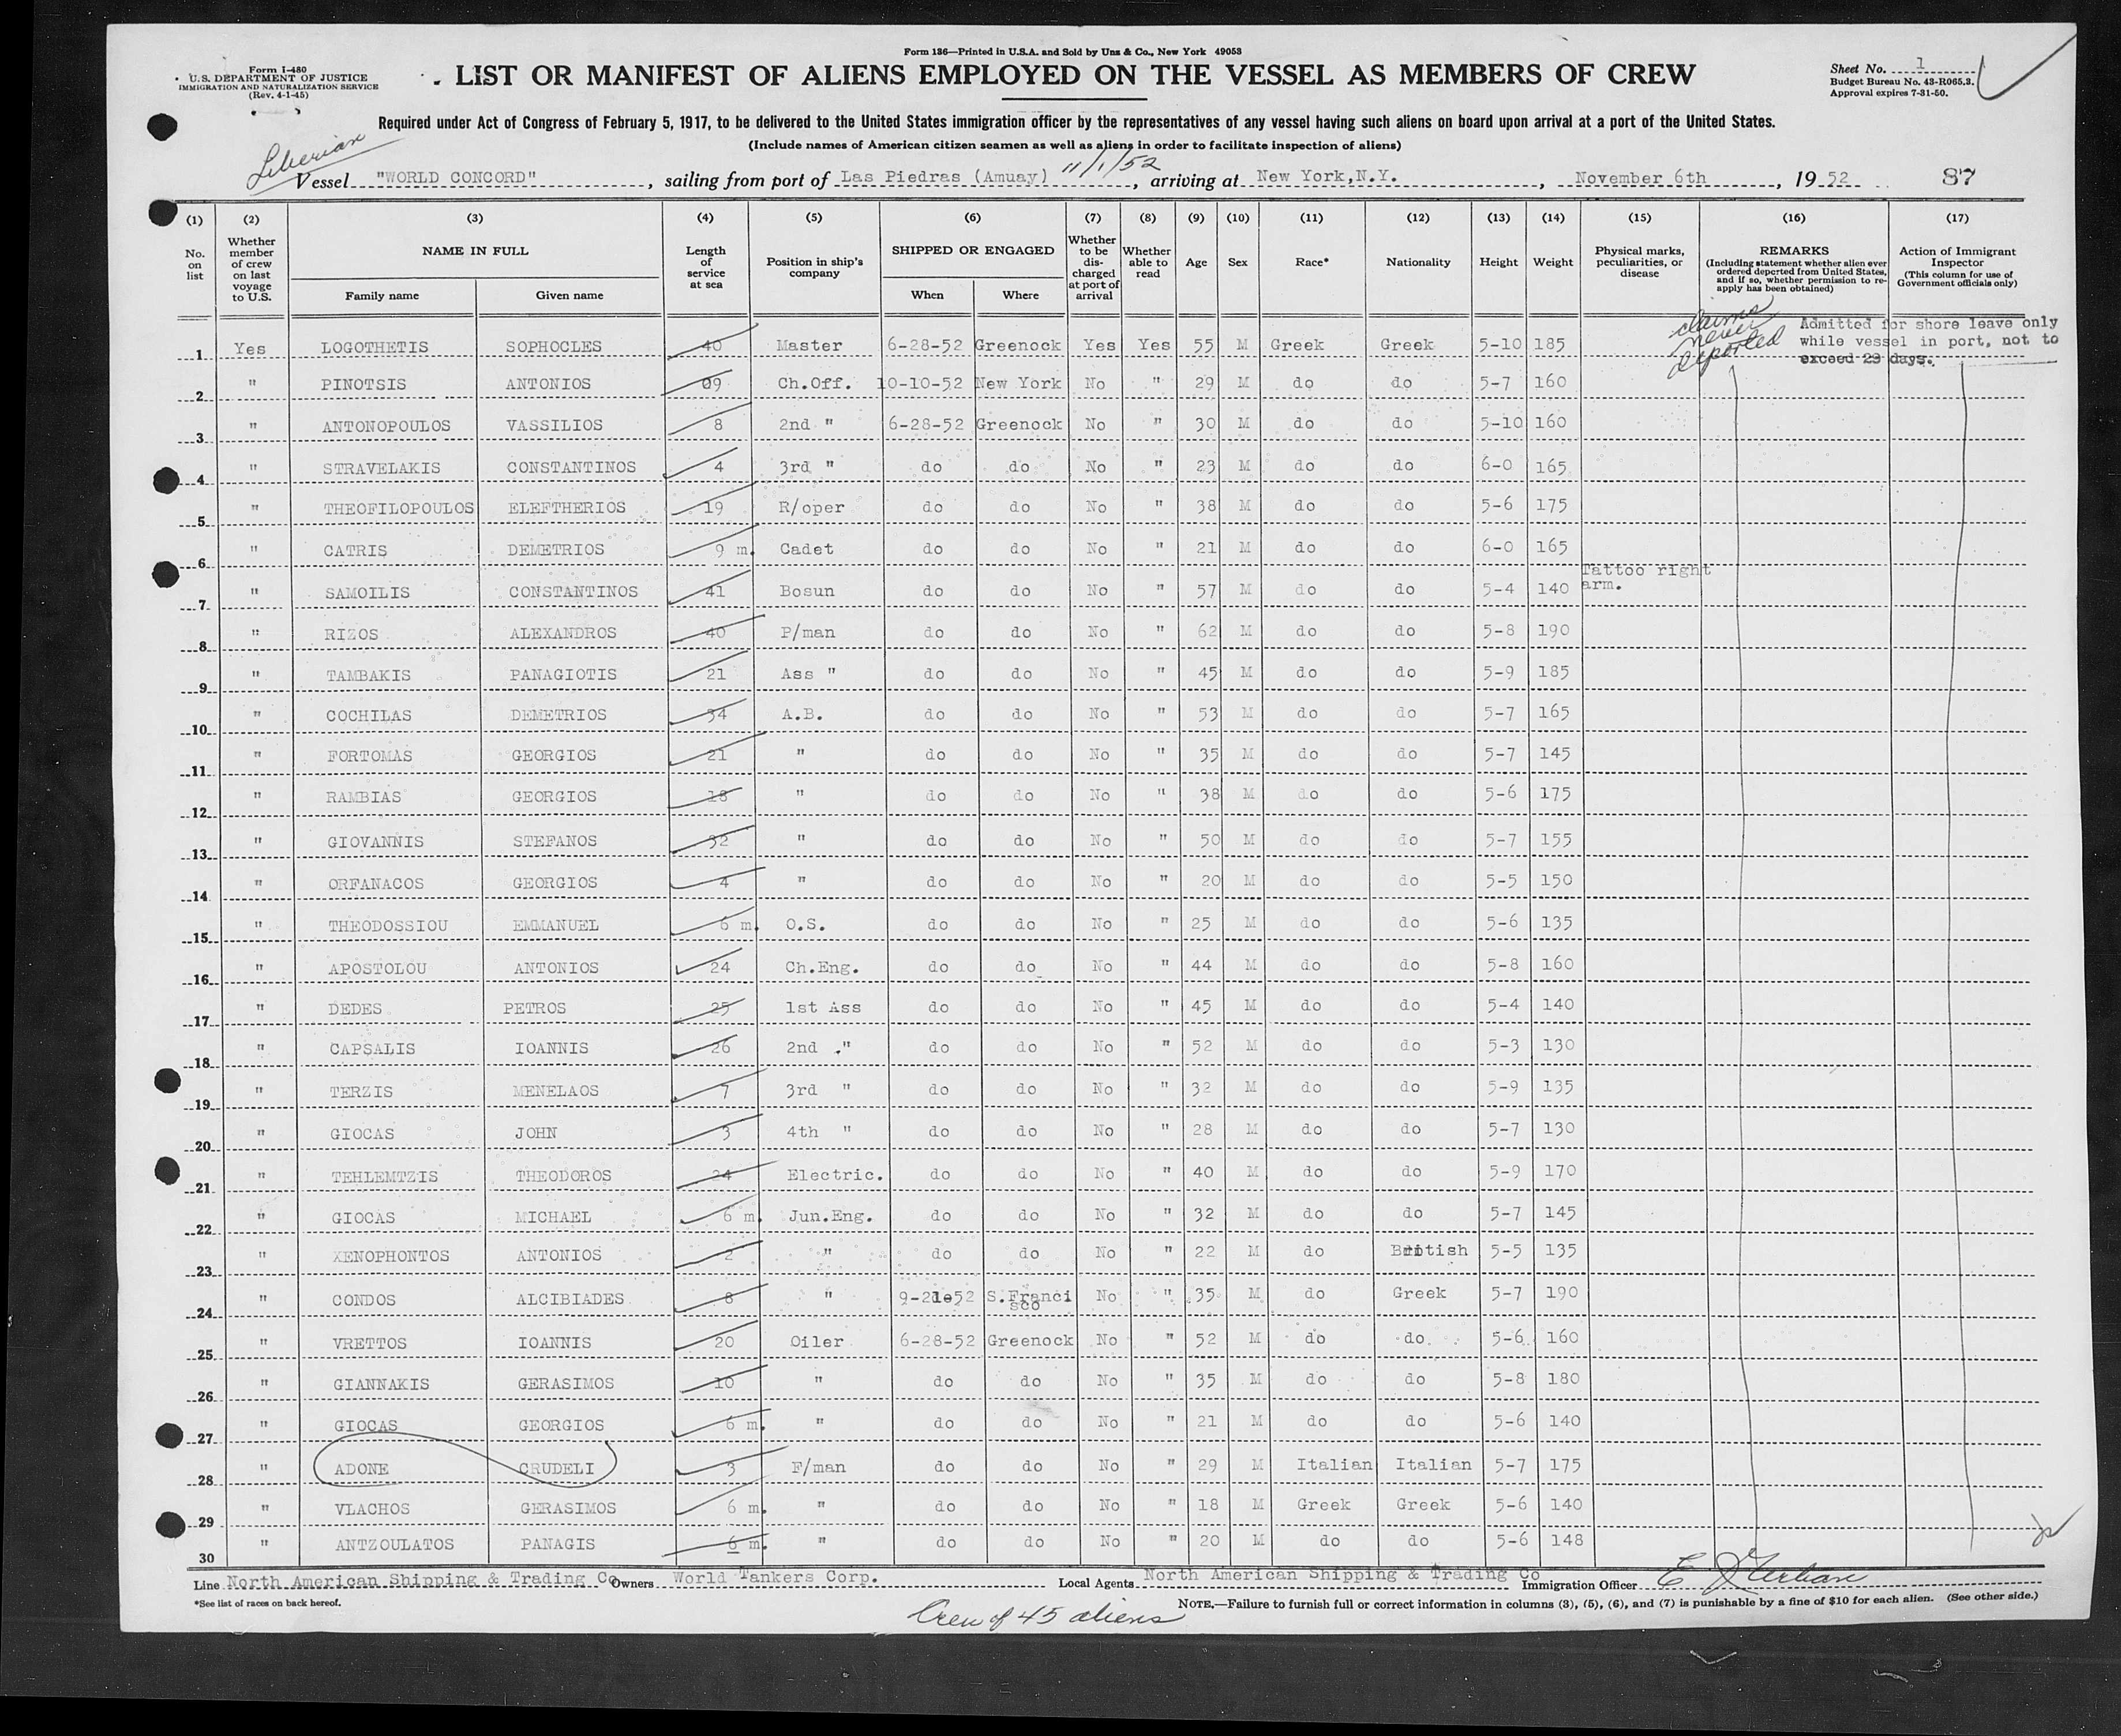 Form 136—Printed in U.S.A. and Sold by Unz & Co., New York 49053
Form I-480
U.S. DEPARTMENT OF JUSTICE
IMMIGRATION AND NATURALIZATION SERVICE
(Rev. 4-1-45)
LIST OR MANIFEST OF ALIENS EMPLOYED ON THE VESSEL AS MEMBERS OF CREW
Sheet No. 1
Budget Bureau No. 43-R065.3.
Approval expires 7-31-50.
Required under Act of Congress of February 5, 1917, to be delivered to the United States immigration officer by the representatives of any vessel having such aliens on board upon arrival at a port of the United States.
(Include names of American citizen seamen as well as aliens in order to facilitate inspection of aliens)
Liberian
11/1/52
Vessel "WORLD CONCORD", sailing from port of Las Piedras (Amuay), arriving at New York,N.Y., November 6th, 1952 87
(1) (2) (3) (4) (5) (6) (7) (8) (9) (10) (11) (12) (13) (14) (15) (16) (17)
No. on list | Whether member of crew on last voyage to U.S. | NAME IN FULL | Family name | Given name | Length of service at sea | Position in ship's company | SHIPPED OR ENGAGED | When | Where | Whether to be discharged at port of arrival | Whether able to read | Age | Sex | Race* | Nationality | Height | Weight | Physical marks, peculiarities, or disease | REMARKS (Including statement whether alien ever ordered deported from United States, and if so, whether permission to reapply has been obtained) | Action of Immigrant Inspector (This column for use of Government officials only)
claims never deported
Admitted for shore leave only
while vessel in port, not to
exceed 29 days.
1 Yes LOGOTHETIS SOPHOCLES 40 Master 6-28-52 Greenock Yes Yes 55 M Greek Greek 5-10 185
2 " PINOTSIS ANTONIOS 09 Ch.Off. 10-10-52 New York No " 29 M do do 5-7 160
3 " ANTONOPOULOS VASSILIOS 8 2nd " 6-28-52 Greenock No " 30 M do do 5-10 160
4 " STRAVELAKIS CONSTANTINOS 4 3rd " do do No " 23 M do do 6-0 165
5 " THEOFILOPOULOS ELEFTHERIOS 19 R/oper do do No " 38 M do do 5-6 175
6 " CATRIS DEMETRIOS 9 m. Cadet do do No " 21 M do do 6-0 165
7 " SAMOILIS CONSTANTINOS 41 Bosun do do No " 57 M do do 5-4 140 Tattoo right arm.
8 " RIZOS ALEXANDROS 40 P/man do do No " 62 M do do 5-8 190
9 " TAMBAKIS PANAGIOTIS 21 Ass " do do No " 45 M do do 5-9 185
10 " COCHILAS DEMETRIOS 34 A.B. do do No " 53 M do do 5-7 165
11 " FORTOMAS GEORGIOS 21 " do do No " 35 M do do 5-7 145
12 " RAMBIAS GEORGIOS 18 " do do No " 38 M do do 5-6 175
13 " GIOVANNIS STEFANOS 32 " do do No " 50 M do do 5-7 155
14 " ORFANACOS GEORGIOS 4 " do do No " 20 M do do 5-5 150
15 " THEODOSSIOU EMMANUEL 6 m. O.S. do do No " 25 M do do 5-6 135
16 " APOSTOLOU ANTONIOS 24 Ch.Eng. do do No " 44 M do do 5-8 160
17 " DEDES PETROS 25 1st Ass do do No " 45 M do do 5-4 140
18 " CAPSALIS IOANNIS 26 2nd " do do No " 52 M do do 5-3 130
19 " TERZIS MENELAOS 7 3rd " do do No " 32 M do do 5-9 135
20 " GIOCAS JOHN 3 4th " do do No " 28 M do do 5-7 130
21 " TEHLEMTZIS THEODOROS 24 Electric. do do No " 40 M do do 5-9 170
22 " GIOCAS MICHAEL 6 m. Jun.Eng. do do No " 32 M do do 5-7 145
23 " XENOPHONTOS ANTONIOS 2 " do do No " 22 M do British 5-5 135
24 " CONDOS ALCIBIADES 8 " 9-21-52 S.Francisco No " 35 M do Greek 5-7 190
25 " VRETTOS IOANNIS 20 Oiler 6-28-52 Greenock No " 52 M do do 5-6 160
26 " GIANNAKIS GERASIMOS 10 " do do No " 35 M do do 5-8 180
27 " GIOCAS GEORGIOS 6 m. " do do No " 21 M do do 5-6 140
28 " ADONE CRUDELI 3 F/man do do No " 29 M Italian Italian 5-7 175
29 " VLACHOS GERASIMOS 6 m. " do do No " 18 M Greek Greek 5-6 140
30 " ANTZOULATOS PANAGIS 6 m. " do do No " 20 M do do 5-6 148
Line North American Shipping & Trading Co Owners World Tankers Corp. Local Agents North American Shipping & Trading Co Immigration Officer
*See list of races on back hereof.
NOTE.—Failure to furnish full or correct information in columns (3), (5), (6), and (7) is punishable by a fine of $10 for each alien. (See other side.)
Crew of 45 aliens